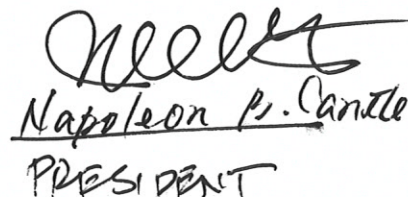 Napoleon B. Cantle
PRESIDENT